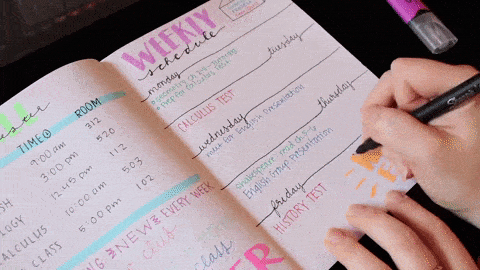 TIME ROOM
9:00 am 312
3:00 pm 520
12:45 pm 112
10:00 am 503
5:00 pm 102
CALCULUS
CLASS
NEW EVERY WEEK
class
WEEKLY
schedule
monday
CALCULUS TEST
tuesday
wednesday
meet for English Presentation
thursday
Shakespeare read ch 5-6
English Group Presentation
friday
HISTORY TEST